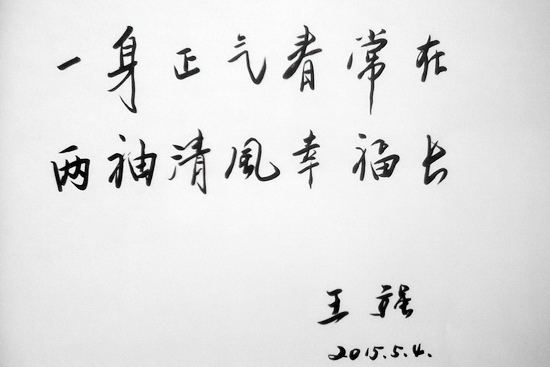 一身正气春常在
两袖清風幸福长
王
2015.5.4.